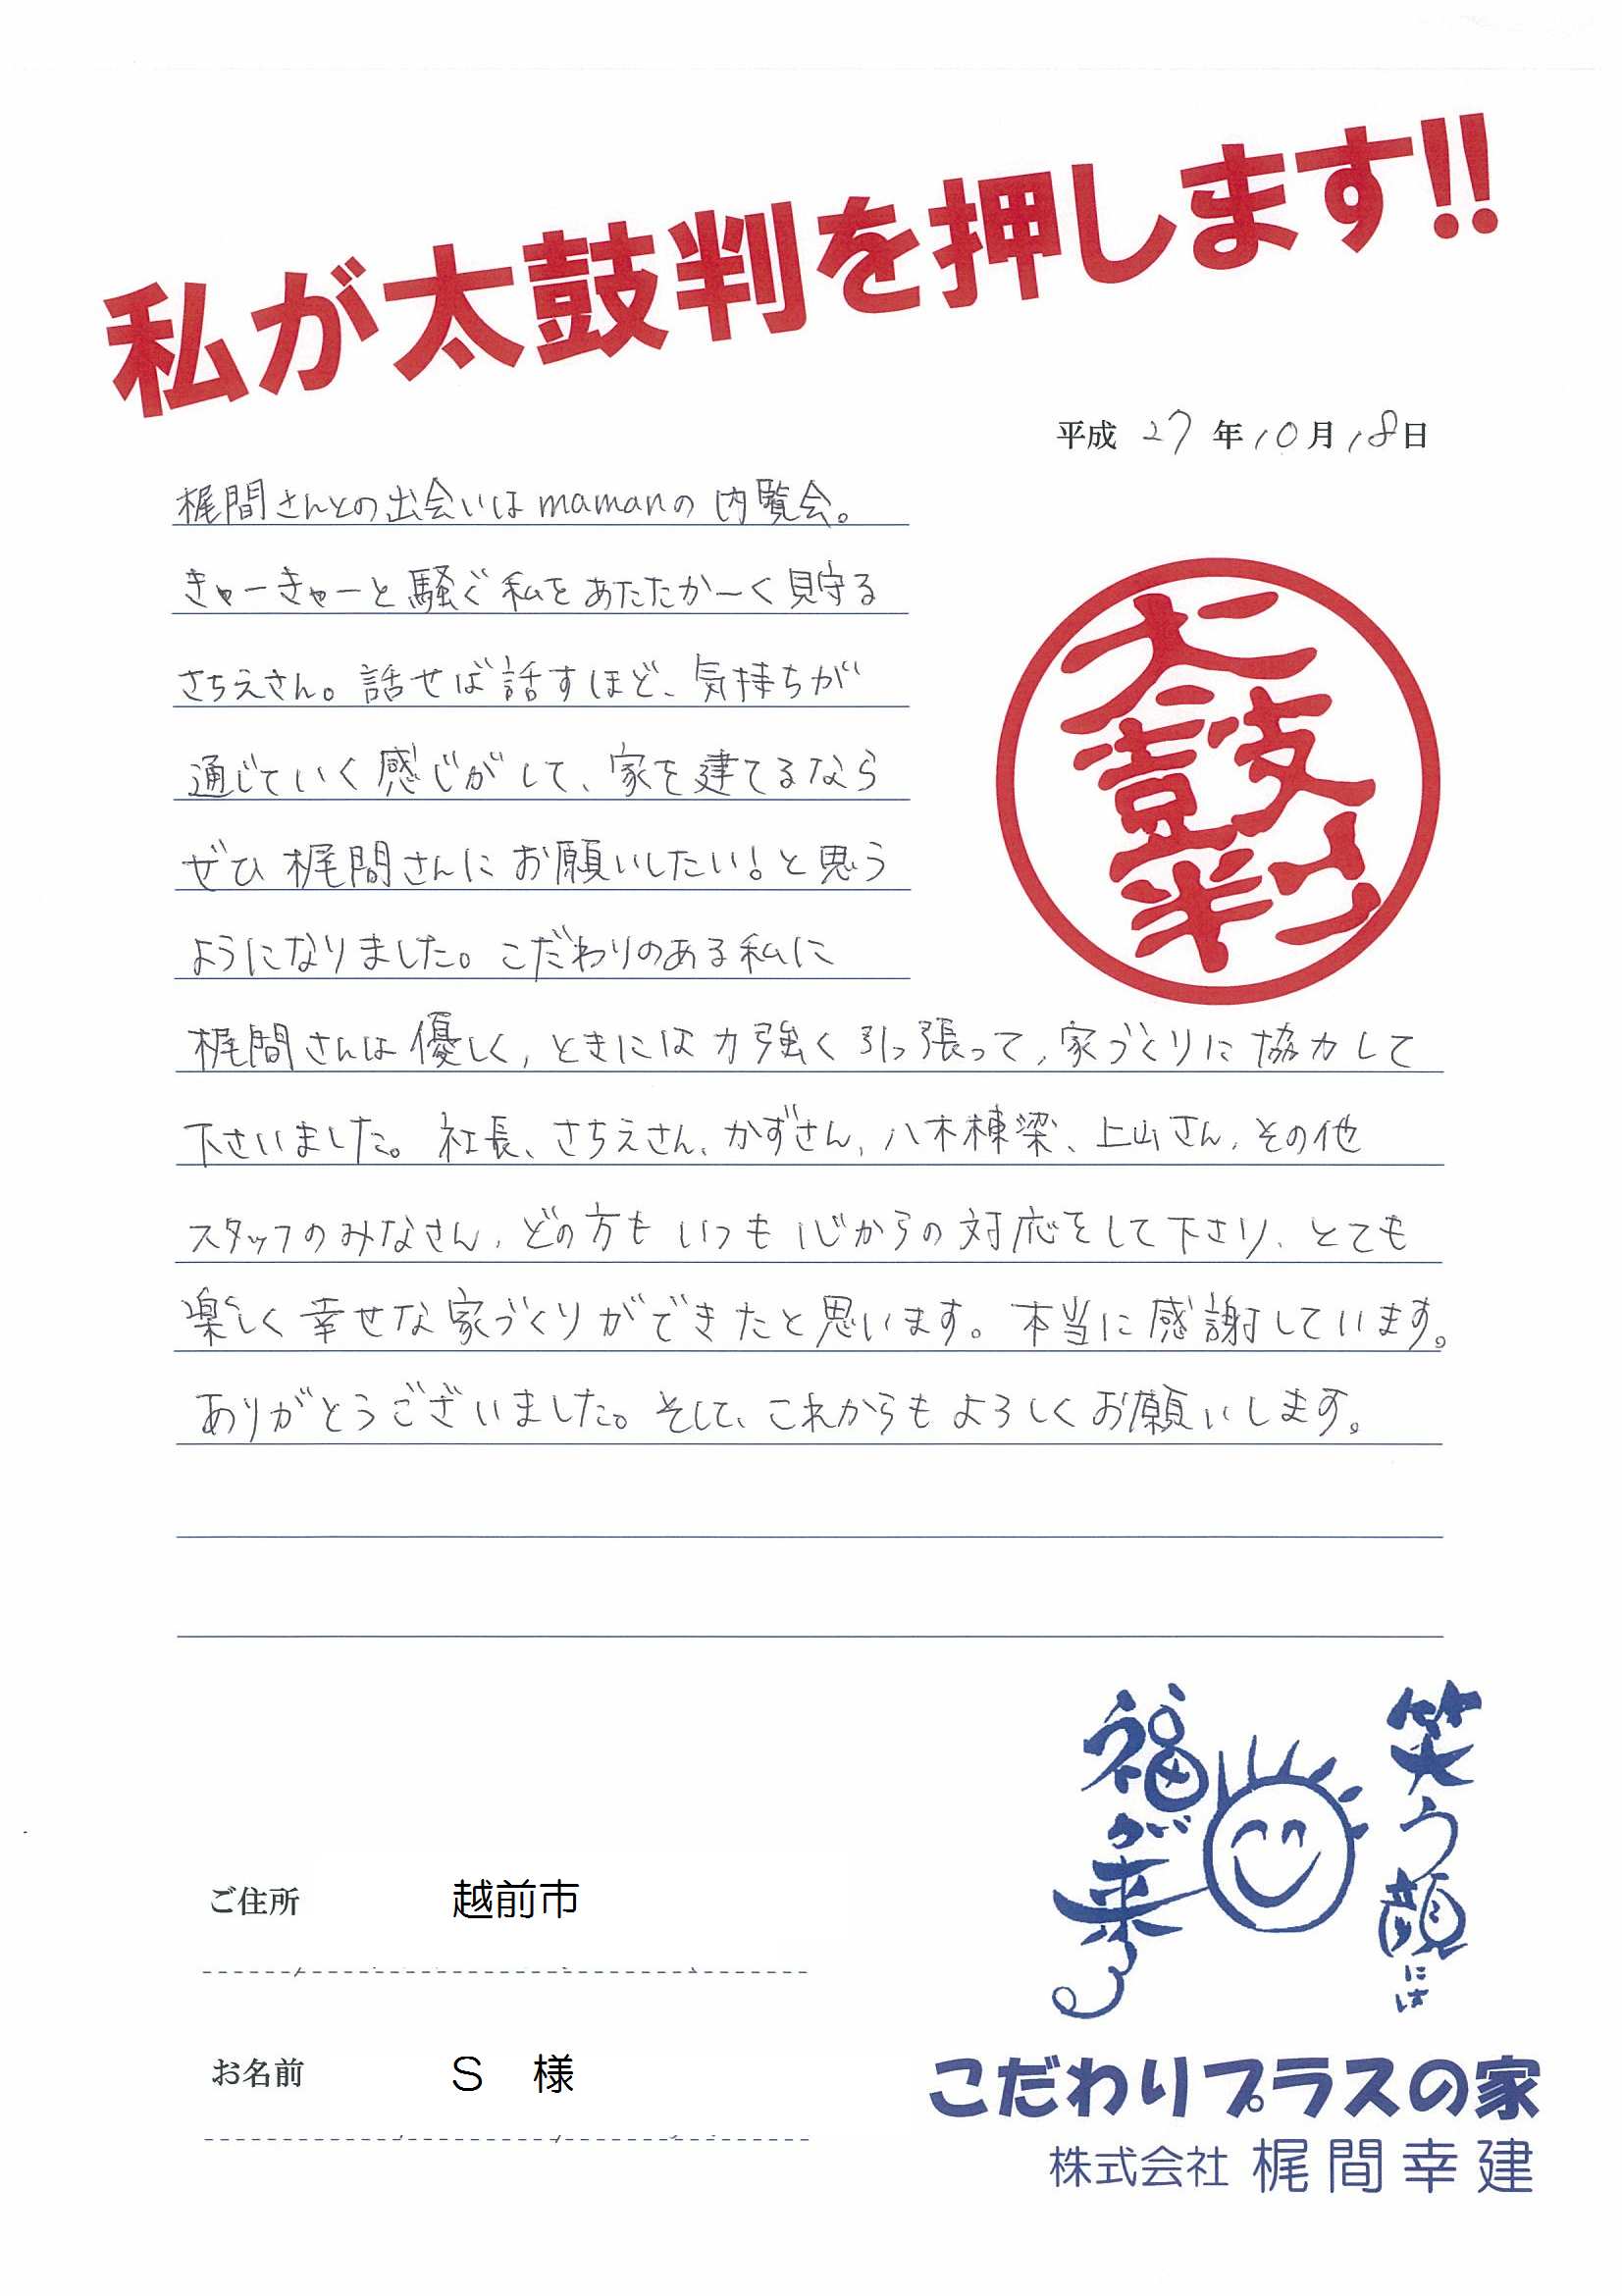 私が太鼓判を押します!!
平成 27 年 10 月 18 日
梶間さんとの出会いは mamanの 内覧会。
きゃーきゃーと騒ぐ私をあたたか〜く見守る
さちえさん。話せば話すほど、気持ちが
通じていく感じがして、家を建てるなら
ぜひ梶間さんにお願いしたい!と思う
ようになりました。こだわりのある私に
太鼓判
梶間さんは優しく、ときには力強く引っ張って、家づくりに協力して
下さいました。社長、さちえさん、かずさん、八木棟梁、上山さん、その他
スタッフのみなさん、どの方もいつも心からの対応をして下さり、とても
楽しく幸せな家づくりができたと思います。本当に感謝しています。
ありがとうございました。そして、これからもよろしくお願いします。
笑う顔には
福が来る
ご住所 越前市
お名前 S 様
こだわりプラスの家
株式会社 梶間幸建